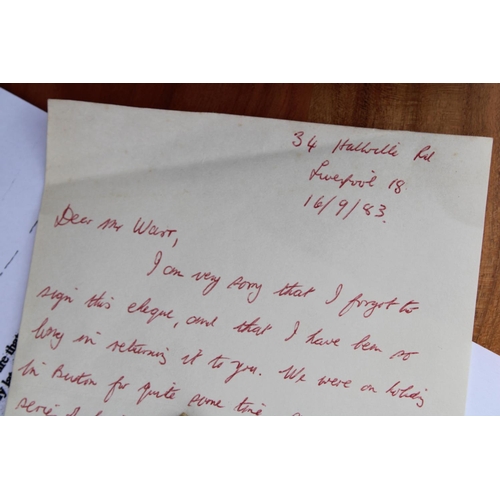 34 Hallville Rd
Liverpool 18
16/9/83.
Dear Mr Warr,
I am very sorry that I forgot to
sign this cheque, and that I have been so
long in returning it to you. We were on holiday
in Buxton for quite some time